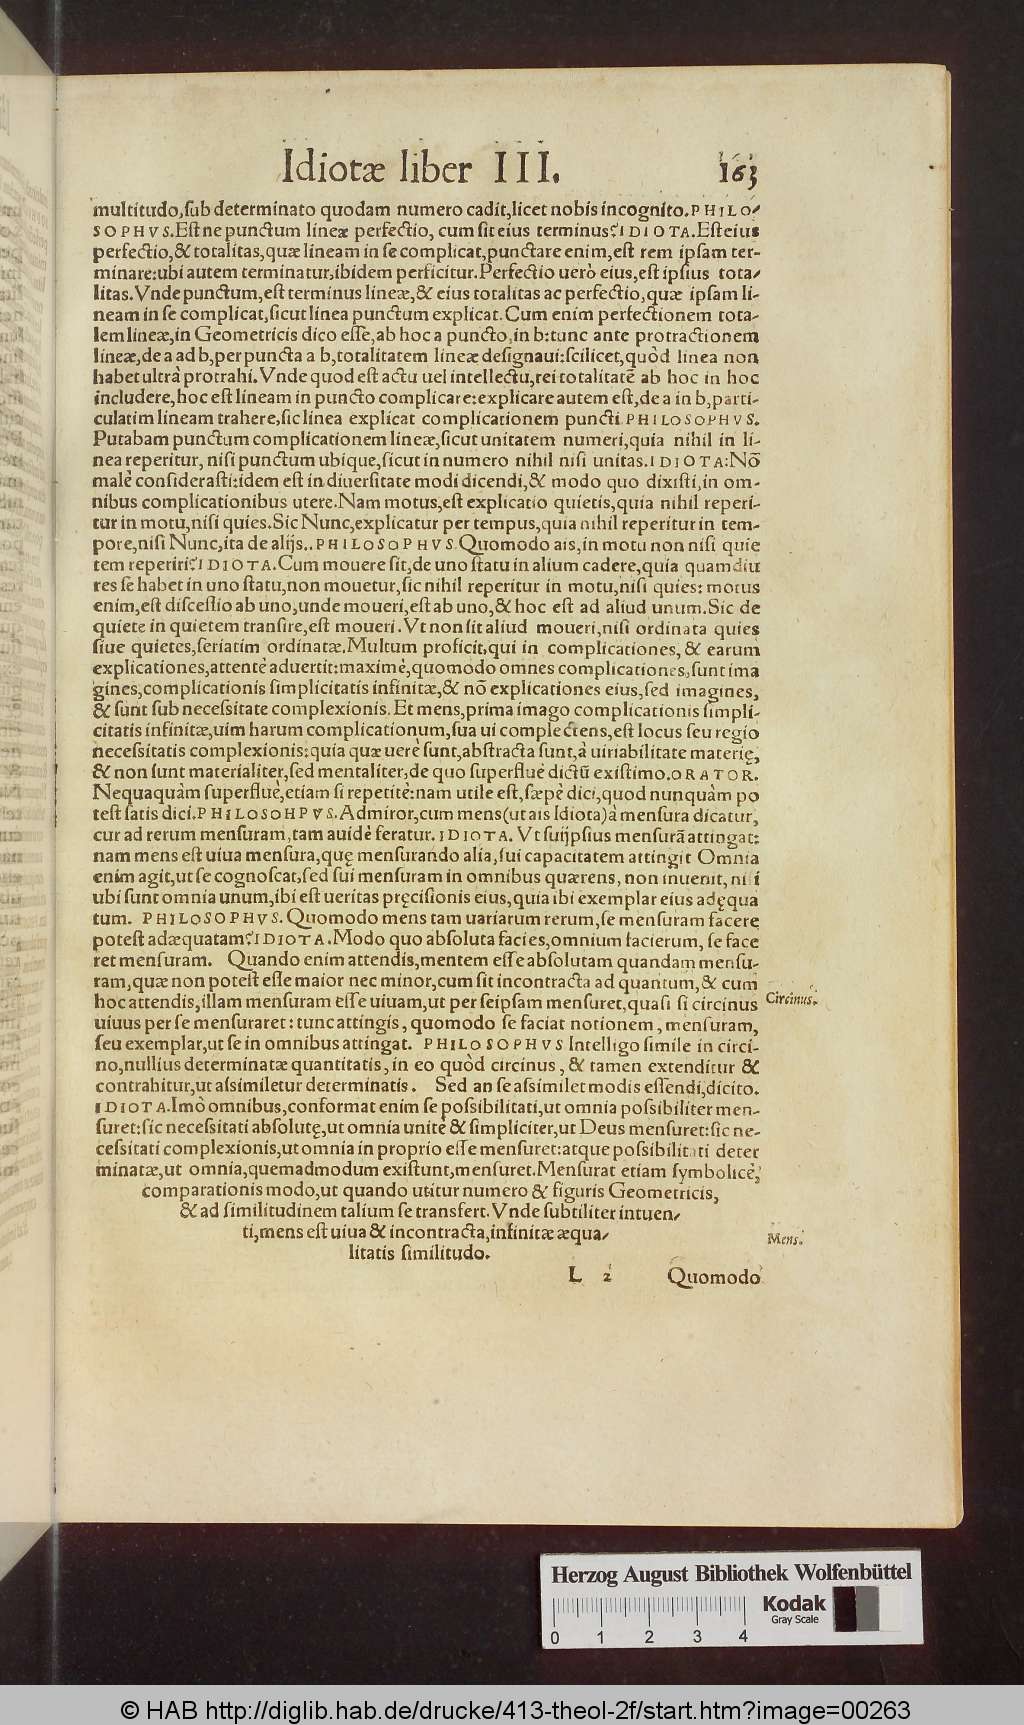 Idiotæ liber III. 163
multitudo,sub determinato quodam numero cadit,licet nobis incognito.PHILO-
SOPHVS.Est ne punctum lineæ perfectio, cum sit eius terminus?IDIOTA.Est eius
perfectio,& totalitas,quæ lineam in se complicat,punctare enim,est rem ipsam ter-
minare:ubi autem terminatur,ibidem perficitur.Perfectio uerò eius,est ipsius tota-
litas.Vnde punctum,est terminus lineæ,& eius totalitas ac perfectio,quæ ipsam li-
neam in se complicat,sicut linea punctum explicat.Cum enim perfectionem tota-
lem lineæ,in Geometricis dico esse,ab hoc a puncto,in b:tunc ante protractionem
lineæ,de a ad b,per puncta a b,totalitatem lineæ designaui:scilicet,quòd linea non
habet ultrà protrahi.Vnde quod est actu uel intellectu,rei totalitatē ab hoc in hoc
includere,hoc est lineam in puncto complicare:explicare autem est,de a in b,parti-
culatim lineam trahere,sic linea explicat complicationem puncti PHILOSOPHVS.
Putabam punctum complicationem lineæ,sicut unitatem numeri,quia nihil in li-
nea reperitur, nisi punctum ubique,sicut in numero nihil nisi unitas.IDIOTA:Nō
malè considerasti:idem est in diuersitate modi dicendi,& modo quo dixisti,in om-
nibus complicationibus utere.Nam motus,est explicatio quietis,quia nihil reperi-
tur in motu,nisi quies.Sic Nunc,explicatur per tempus,quia nihil reperitur in tem-
pore,nisi Nunc,ita de alijs..PHILOSOPHVS.Quomodo ais,in motu non nisi quie
tem reperiri?IDIOTA.Cum mouere sit,de uno statu in alium cadere,quia quamdiu
res se habet in uno statu,non mouetur,sic nihil reperitur in motu,nisi quies: motus
enim,est discessio ab uno,unde moueri,est ab uno,& hoc est ad aliud unum.Sic de
quiete in quietem transire,est moueri.Vt non sit aliud moueri,nisi ordinata quies
siue quietes,seriatim ordinatæ.Multum proficit,qui in complicationes, & earum
explicationes,attentè aduertit:maximè,quomodo omnes complicationes,sunt ima
gines,complicationis simplicitatis infinitæ,& nō explicationes eius,sed imagines,
& sunt sub necessitate complexionis. Et mens,prima imago complicationis simpli-
citatis infinitæ,uim harum complicationum,sua ui complectens,est locus seu regio
necessitatis complexionis:quia quæ uerè sunt,abstracta sunt,à uiriabilitate materię,
& non sunt materialiter,sed mentaliter,de quo superfluè dictū existimo.ORATOR.
Nequaquàm superfluè,etiam si repetitè:nam utile est,sæpè dici,quod nunquàm po
test satis dici.PHILOSOHPVS.Admiror,cum mens(ut ais Idiota)à mensura dicatur,
cur ad rerum mensuram,tam auidè feratur. IDIOTA. Vt suijpsius mensurā attingat:
nam mens est uiua mensura,quę mensurando alia,sui capacitatem attingit Omnia
enim agit,ut se cognoscat,sed sui mensuram in omnibus quærens, non inuenit, nisi
ubi sunt omnia unum,ibi est ueritas pręcisionis eius,quia ibi exemplar eius adęqua
tum. PHILOSOPHVS.Quomodo mens tam uariarum rerum,se mensuram facere
potest adæquatam?IDIOTA.Modo quo absoluta facies,omnium facierum, se face
ret mensuram. Quando enim attendis,mentem esse absolutam quandam mensu-
ram,quæ non potest esse maior nec minor,cum sit incontracta ad quantum,& cum
hoc attendis,illam mensuram esse uiuam,ut per seipsam mensuret,quasi si circinus
Circinus.
uiuus per se mensuraret: tunc attingis, quomodo se faciat notionem, mensuram,
seu exemplar,ut se in omnibus attingat. PHILOSOPHVS Intelligo simile in circi-
no,nullius determinatæ quantitatis, in eo quòd circinus, & tamen extenditur &
contrahitur,ut assimiletur determinatis. Sed an se assimilet modis essendi,dicito.
IDIOTA.Imò omnibus,conformat enim se possibilitati,ut omnia possibiliter men-
suret:sic necessitati absolutę,ut omnia unitè & simpliciter,ut Deus mensuret:sic ne-
cessitati complexionis,ut omnia in proprio esse mensuret:atque possibilitati deter
minatæ,ut omnia,quemadmodum existunt,mensuret.Mensurat etiam symbolicè,
comparationis modo,ut quando utitur numero & figuris Geometricis,
& ad similitudinem talium se transfert.Vnde subtiliter intuen-
ti,mens est uiua & incontracta,infinitæ æqua-
Mens.
litatis similitudo.
L 2 Quomodo
Herzog August Bibliothek Wolfenbüttel
Kodak
Gray Scale
0 1 2 3 4
© HAB http://diglib.hab.de/drucke/413-theol-2f/start.htm?image=00263